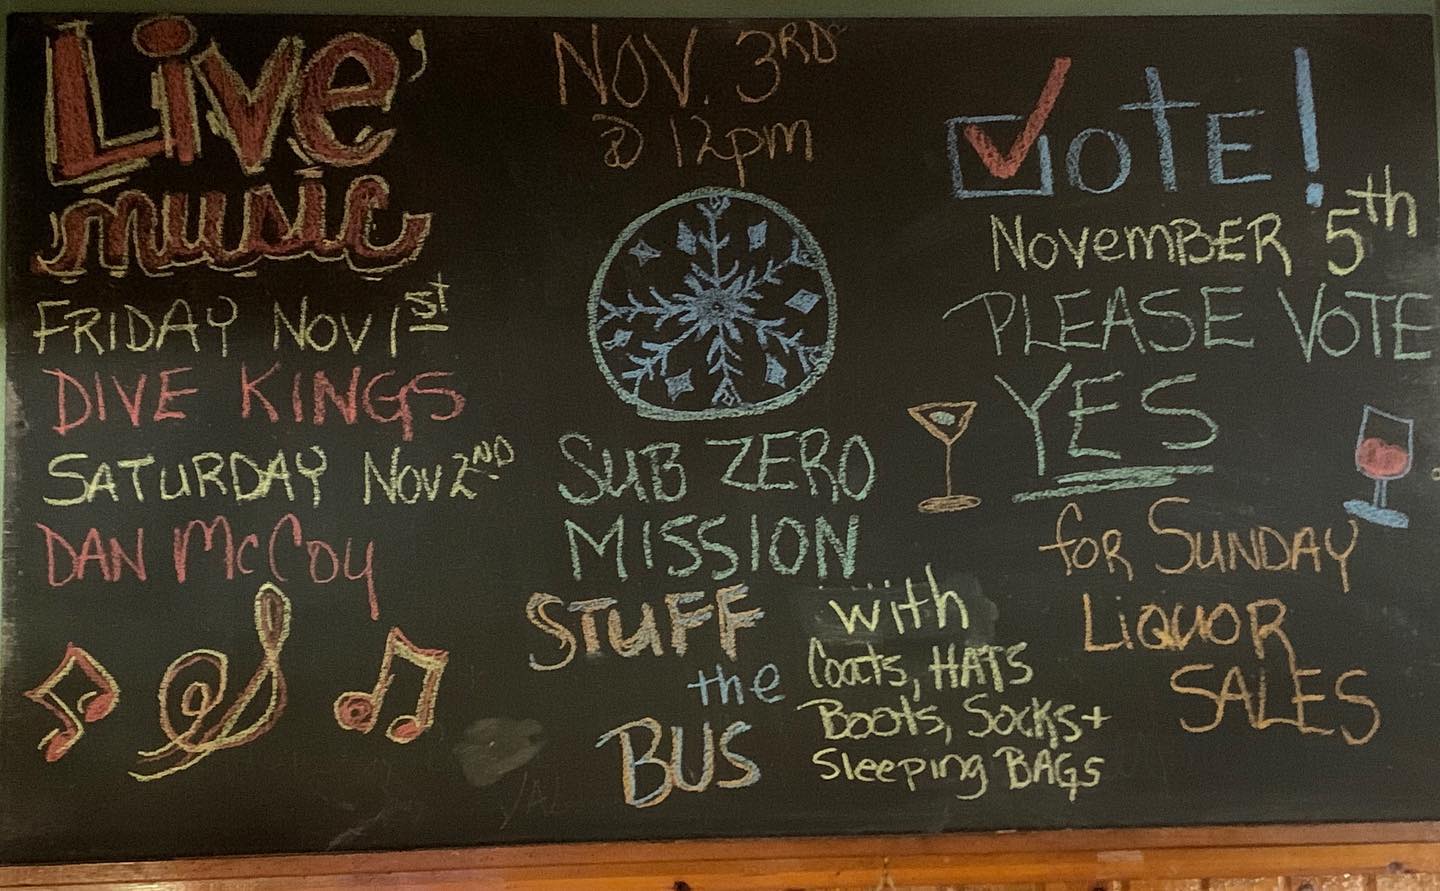 Live
music
FRIDAY NOV 1st
DIVE KINGS
SATURDAY NOV 2ND
DAN McCoy
NOV. 3RD
@ 12pm
SUB ZERO
MISSION
STUFF
the
BUS
with
Coats, HATS
Boots, Socks +
Sleeping BAGS
VOTE!
NovemBER 5th
PLEASE VOTE
YES
for SUNDAY
LiQUOR
SALES